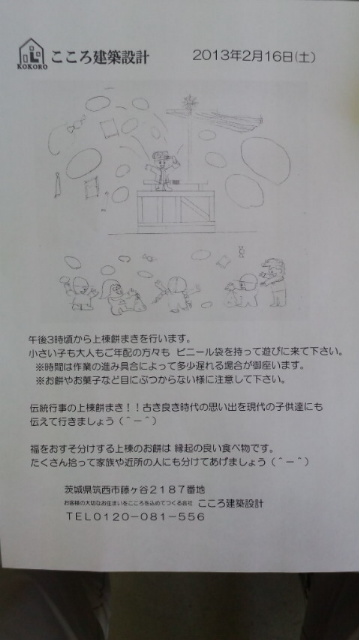 KOKORO
こころ建築設計
2013年2月16日(土)
午後3時頃から上棟餅まきを行います。
小さい子も大人もご年配の方々も ビニール袋を持って遊びに来て下さい。
※時間は作業の進み具合によって多少遅れる場合が御座います。
※お餅やお菓子など目にぶつからない様に注意して下さい。
伝統行事の上棟餅まき！！古き良き時代の思い出を現代の子供達にも
伝えて行きましょう（＾－＾）
福をおすそ分けする上棟のお餅は 縁起の良い食べ物です。
たくさん拾って家族や近所の人にも分けてあげましょう（＾－＾）
茨城県筑西市藤ヶ谷2187番地
お客様の大切なお住まいをこころを込めてつくる会社 こころ建築設計
TEL0120-081-556